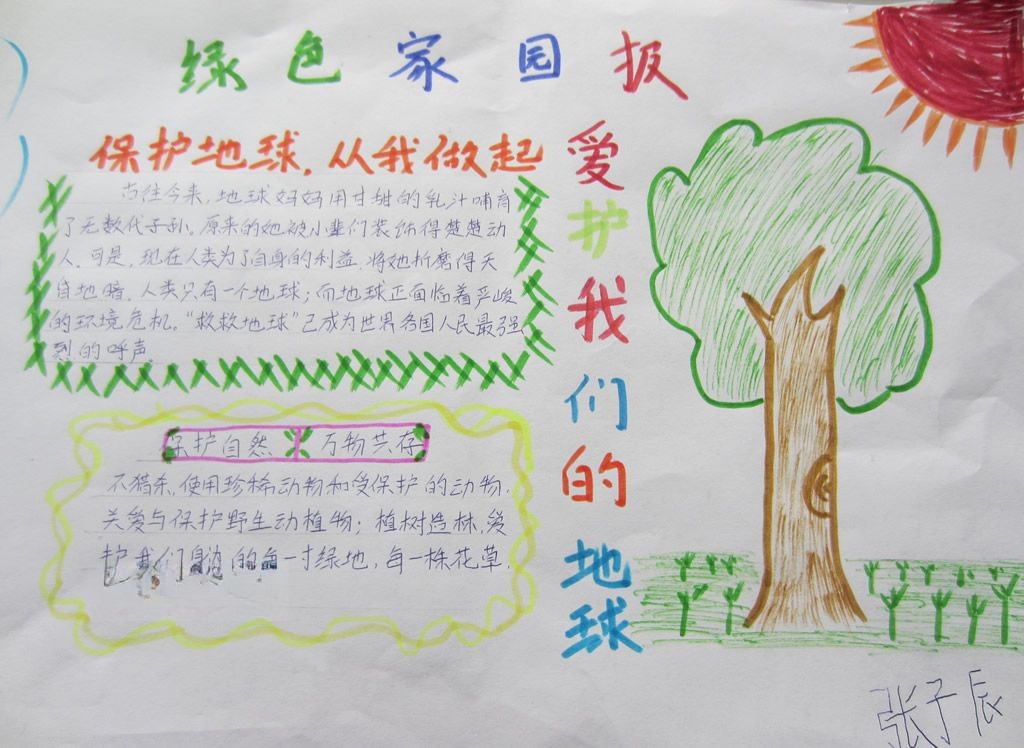 绿色家园报
保护地球.从我做起
古往今来,地球妈妈用甘甜的乳汁哺育
了无数代子孙。原来的她被小辈们装饰得楚楚动
人.可是,现在人类为了自身的利益.将她折磨得天
昏地暗.人类只有一个地球;而地球正面临着严峻
的环境危机。“救救地球”已成为世界各国人民最强
烈的呼声.
保护自然 万物共存
不猎杀.使用珍稀动物和受保护的动物.
关爱与保护野生动植物;植树造林,爱
护我们身边的每一寸绿地,每一株花草.
爱护我们的地球
张子辰